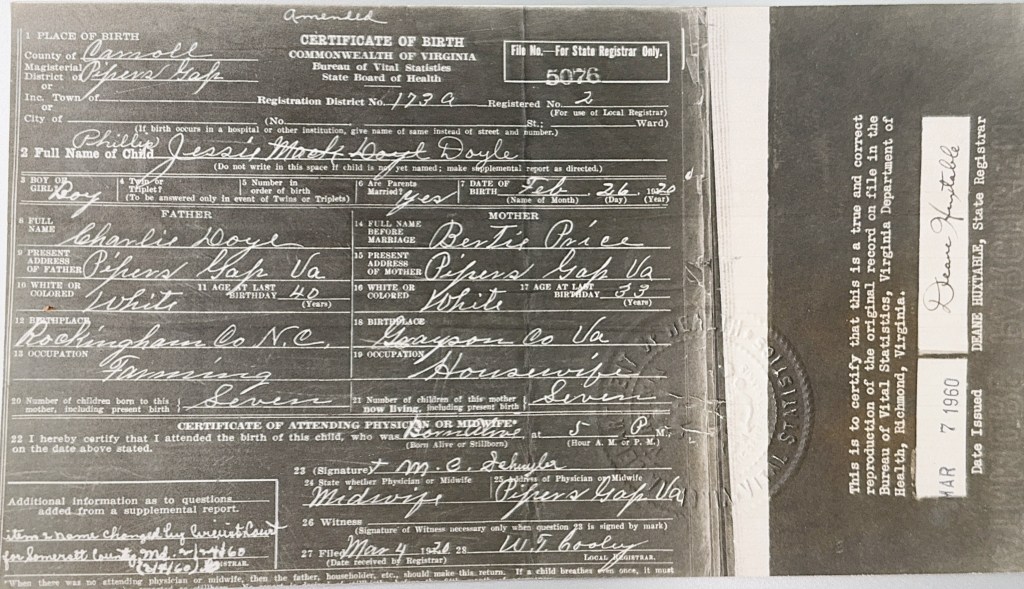 Amended
1 PLACE OF BIRTH
County of Carroll
Magisterial
District of Pipers Gap
or
Inc. Town of
or
City of
CERTIFICATE OF BIRTH
COMMONWEALTH OF VIRGINIA
Bureau of Vital Statistics
State Board of Health
File No.—For State Registrar Only.
5076
Registration District No. 173 a Registered No. 2
(For use of Local Registrar)
(No. St.; Ward)
(If birth occurs in a hospital or other institution, give name of same instead of street and number.)
Phillip
2 Full Name of Child Jessie Mack Doyl Doyle
(Do not write in this space if child is not yet named; make supplemental report as directed.)
3 BOY OR GIRL? Boy 4 Twin or Triplet? 5 Number in order of birth 6 Are Parents Married? yes 7 DATE OF BIRTH Feb 26 1920
(To be answered only in event of Twins or Triplets) (Name of Month) (Day) (Year)
FATHER
8 FULL NAME Charlie Doyl
9 PRESENT ADDRESS OF FATHER Pipers Gap Va
10 WHITE OR COLORED White 11 AGE AT LAST BIRTHDAY 40 (Years)
12 BIRTHPLACE Rockingham Co N.C.
13 OCCUPATION Farming
MOTHER
14 FULL NAME BEFORE MARRIAGE Bertie Price
15 PRESENT ADDRESS OF MOTHER Pipers Gap Va
16 WHITE OR COLORED White 17 AGE AT LAST BIRTHDAY 33 (Years)
18 BIRTHPLACE Grayson Co Va
19 OCCUPATION Housewife
20 Number of children born to this mother, including present birth Seven
21 Number of children of this mother now living, including present birth Seven
CERTIFICATE OF ATTENDING PHYSICIAN OR MIDWIFE*
22 I hereby certify that I attended the birth of this child, who was Born alive at 5 P M.,
on the date above stated. (Born Alive or Stillborn) (Hour A. M. or P. M.)
23 (Signature) M. C. Schuyler
24 State whether Physician or Midwife 25 Address of Physician or Midwife
Midwife Pipers Gap Va
26 Witness
(Signature of Witness necessary only when question 23 is signed by mark)
27 Filed Mar 4 1920 28 W.T. Cooley
(Date received by Registrar) LOCAL REGISTRAR.
Additional information as to questions
added from a supplemental report.
item 2 name changed by Circuit Court
for Somerset County, Md. 2/24/60
REGISTRAR.
*When there was no attending physician or midwife, then the father, householder, etc., should make this return. If a child breathes even once, it must
This is to certify that this is a true and correct
reproduction of the original record on file in the
Bureau of Vital Statistics, Virginia Department of
Health, Richmond, Virginia.
MAR 7 1960
Date Issued
Deane Huxtable
DEANE HUXTABLE, State Registrar